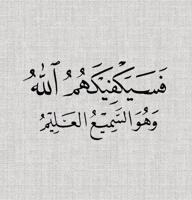 فَسَيَكْفِيكَهُمُ ٱللَّهُ
وَهُوَ السَّمِيعُ العَلِيمُ